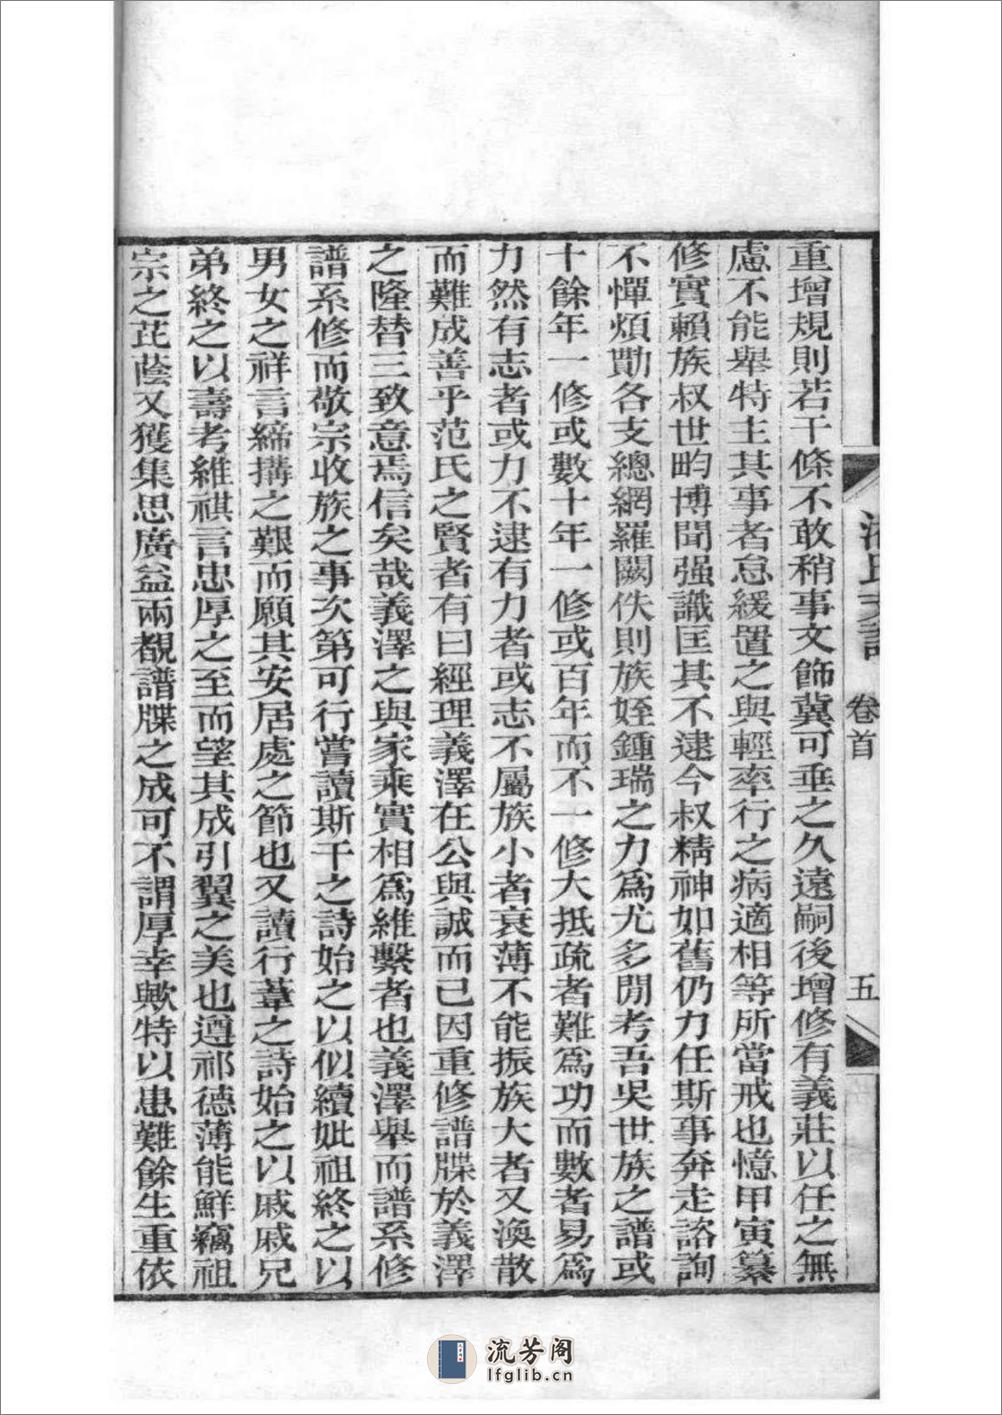 重增規則若干條不敢稍事文飾冀可垂之久遠嗣後增修有義莊以任之無
慮不能舉特主其事者怠緩置之與輕率行之病適相等所當戒也憶甲寅纂
修實賴族叔世畇博聞强識匡其不逮今叔精神如舊仍力任斯事奔走諮詢
不憚煩勩各支總網羅闕佚則族姪鍾瑞之力爲尤多閒考吾吳世族之譜或
十餘年一修或數十年一修或百年而不一修大抵疏者難爲功而數者易爲
力然有志者或力不逮有力者或志不屬族小者衰薄不能振族大者又渙散
而難成善乎范氏之賢者有曰經理義澤在公與誠而已因重修譜牒於義澤
之隆替三致意焉信矣哉義澤之與家乘實相爲維繫者也義澤舉而譜系修
譜系修而敬宗收族之事次第可行嘗讀斯干之詩始之以似續妣祖終之以
男女之祥言締搆之艱而願其安居處之節也又讀行葦之詩始之以戚戚兄
弟終之以壽考維祺言忠厚之至而望其成引翼之美也遵祁德薄能鮮竊祖
宗之芘蔭又獲集思廣益兩覩譜牒之成可不謂厚幸歟特以患難餘生重依
氏支譜
卷首
五
流芳阁
lfglib.cn